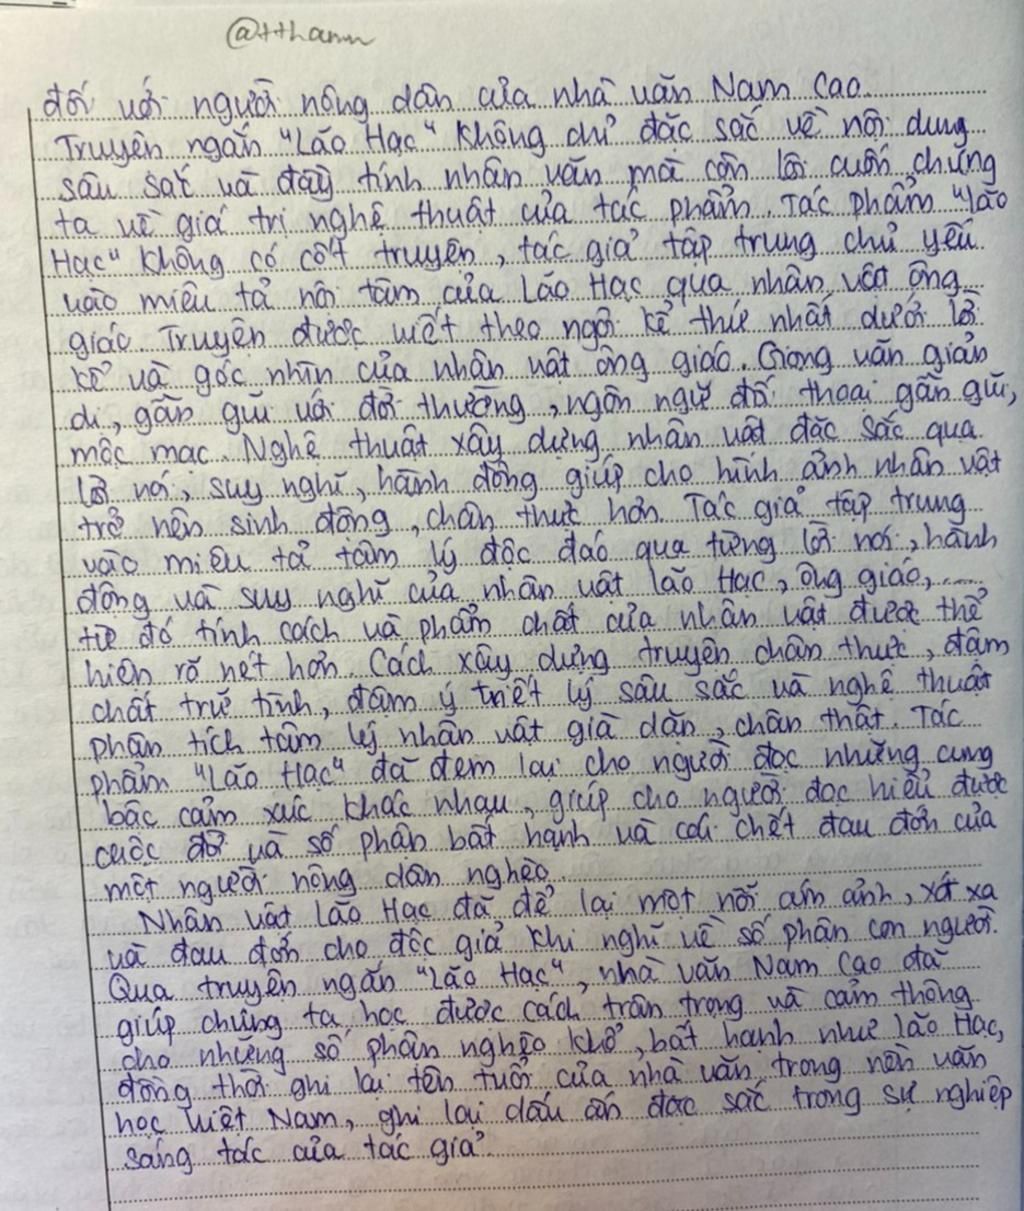 @tthamm
đối với người nông dân của nhà văn Nam Cao.
Truyện ngắn "Lão Hạc" không chỉ đặc sắc về nội dung
sâu sắc và đầy tính nhân văn mà còn lôi cuốn chúng
ta về giá trị nghệ thuật của tác phẩm. Tác phẩm "Lão
Hạc" không có cốt truyện, tác giả tập trung chủ yếu
vào miêu tả nội tâm của Lão Hạc qua nhân vật ông
giáo. Truyện được viết theo ngôi kể thứ nhất dưới lời
kể và góc nhìn của nhân vật ông giáo. Giọng văn giản
dị, gần gũi với đời thường, ngôn ngữ đối thoại gần gũi,
mộc mạc. Nghệ thuật xây dựng nhân vật đặc sắc qua
lời nói, suy nghĩ, hành động giúp cho hình ảnh nhân vật
trở nên sinh động, chân thực hơn. Tác giả tập trung
vào miêu tả tâm lý độc đáo qua từng lời nói, hành
động và suy nghĩ của nhân vật lão Hạc, ông giáo,.....
từ đó tính cách và phẩm chất của nhân vật được thể
hiện rõ nét hơn. Cách xây dựng truyện chân thực, đậm
chất trữ tình, đậm ý triết lý sâu sắc và nghệ thuật
phân tích tâm lý nhân vật già dặn, chân thật. Tác
phẩm "Lão Hạc" đã đem lại cho người đọc những cung
bậc cảm xúc khác nhau, giúp cho người đọc hiểu được
cuộc đời và số phận bất hạnh và cái chết đau đớn của
một người nông dân nghèo.
Nhân vật Lão Hạc đã để lại một nỗi ám ảnh, xót xa
và đau đớn cho độc giả khi nghĩ về số phận con người.
Qua truyện ngắn "Lão Hạc", nhà văn Nam Cao đã
giúp chúng ta học được cách trân trọng và cảm thông
cho những số phận nghèo khổ, bất hạnh như lão Hạc,
đồng thời ghi lại tên tuổi của nhà văn trong nền văn
học Việt Nam, ghi lại dấu ấn đặc sắc trong sự nghiệp
sáng tác của tác giả.